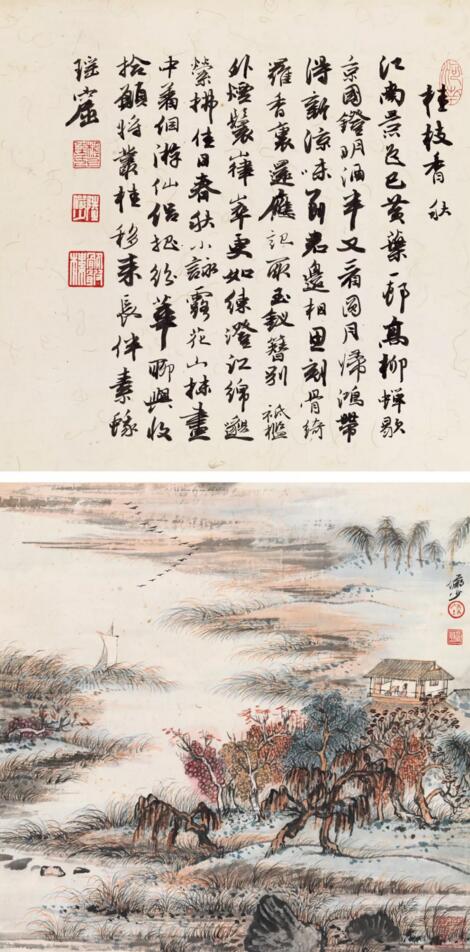 桂枝香 秋
江南景色已黄葉一邨高柳蟬歇
京國鐙明酒半又看圓月歸鴻帶
得新涼味 邊相思刻骨綺
羅香裏還應記取玉釵簪別 祇檻
外煙鬟嵂崒更如練澄江綿邈
縈拂佳日春秋小詠露花山抹畫
中著個游仙侶挹紛華聊與收
拾願將叢桂移來長伴素蟾
瑤窟
儼少